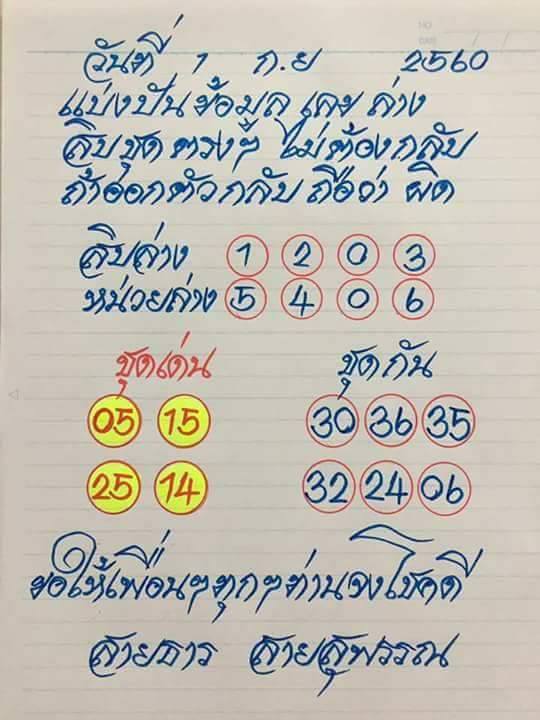 NO
DATE / /
วันที่ 1 ก.ย 2560
แบ่งปันข้อมูล เลข ล่าง
สิบชุด ตรงๆ ไม่ต้องกลับ
ถ้าออกตัวกลับ ถือว่า ผิด
สิบล่าง 1 2 0 3
หน่วยล่าง 5 4 0 6
ชุดเด่น ชุดกัน
05 15 30 36 35
25 14 32 24 06
ขอให้เพื่อนๆทุกๆท่านจงโชคดี
สายธาร สายสุพรรณ